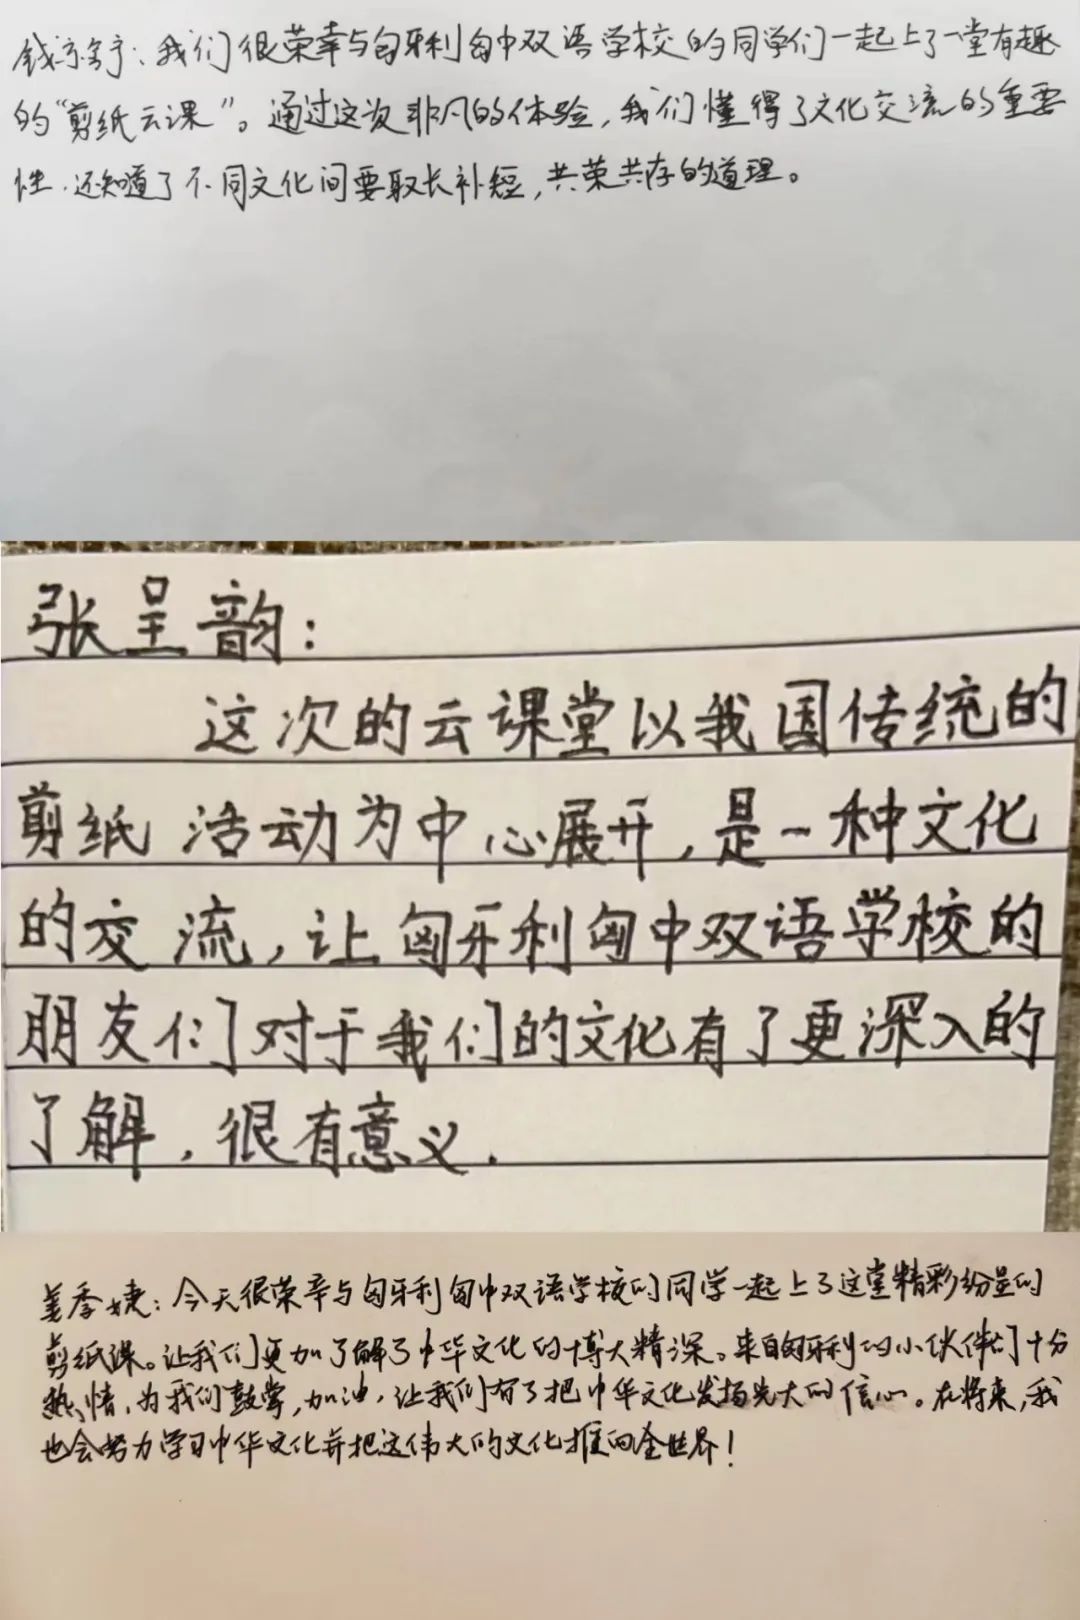 钱亦宁：我们很荣幸与匈牙利匈中双语学校的同学们一起上了一堂有趣
的“剪纸云课”。通过这次非凡的体验，我们懂得了文化交流的重要
性，还知道了不同文化间要取长补短，共荣共存的道理。
张呈韵：
这次的云课堂以我国传统的
剪纸活动为中心展开，是一种文化
的交流，让匈牙利匈中双语学校的
朋友们对于我们的文化有了更深入的
了解，很有意义.
姜季婕：今天很荣幸与匈牙利匈中双语学校的同学一起上了这堂精彩纷呈的
剪纸课。让我们更加了解了中华文化的博大精深。来自匈牙利的小伙伴们十分
热情，为我们鼓掌，加油，让我们有了把中华文化发扬光大的信心。在将来，我
也会努力学习中华文化并把这伟大的文化推向全世界！